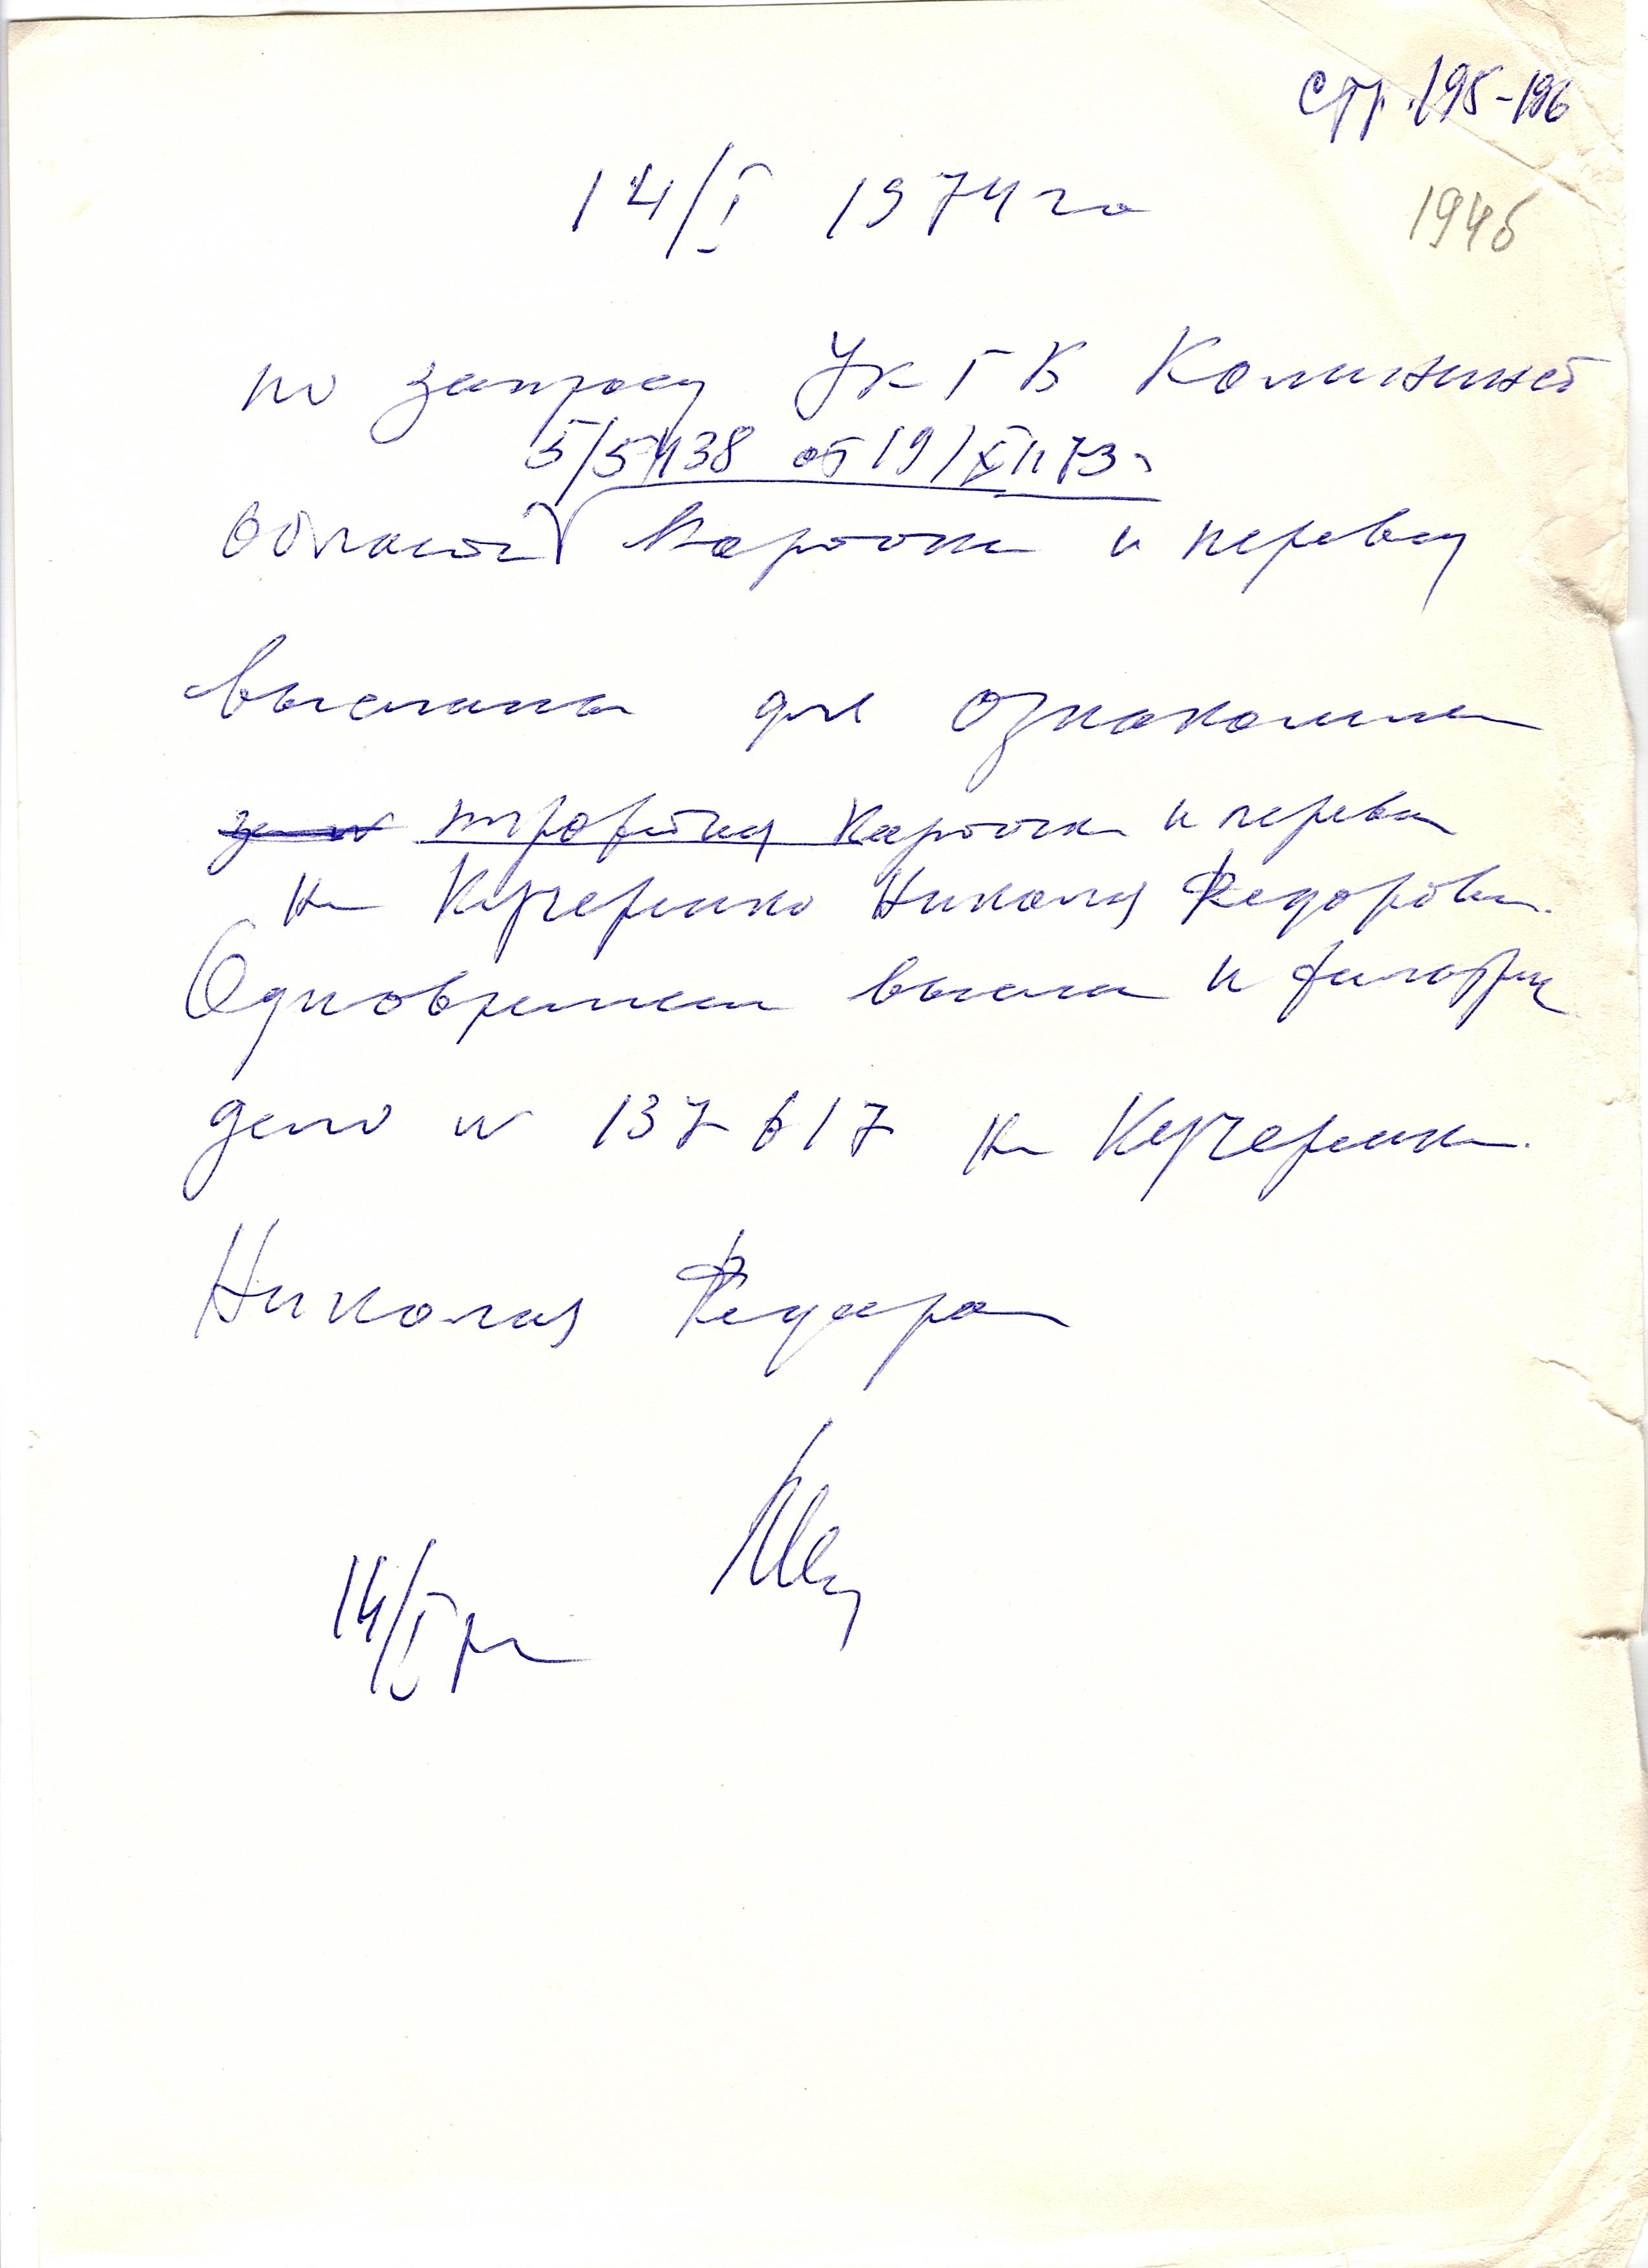 стр. 195-196
14/I 1974 го
1946
по запросу УКГБ Калининс
5/5/1138 от 19/XII 73 г
области карточки и перевод
высланы для ознакомлен
трофейная карточка и перевод
на Кучеренко Николая Федорович.
Одновремен выслан и фильтрац
дело № 137617 на Кучеренко.
Николая Федоро
14/I